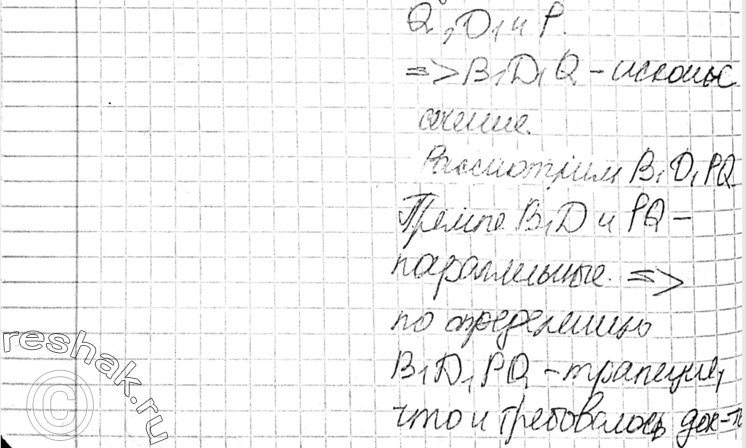 Q, D₁ и P.
=> B₁D₁Q - искомое
сечение.
Рассмотрим B₁D₁PQ
Прямые B₁D и PQ -
параллельные. =>
по определению
B₁D₁PQ - трапеция,
что и требовалось док-ть
reshak.ru